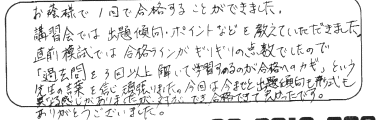 お蔭様で1回で合格することができました。
講習会では出題傾向・ポイントなどを教えていただきました
直前模試では合格ラインがギリギリの点数でしたので
「過去問を3回以上解いて学習するのが合格へのカギ」という
先生の言葉を信じ頑張りました。今回は今までと出題傾向も形式も
異なる感じがありましたが、合格できて良かったです。
ありがとうございました。